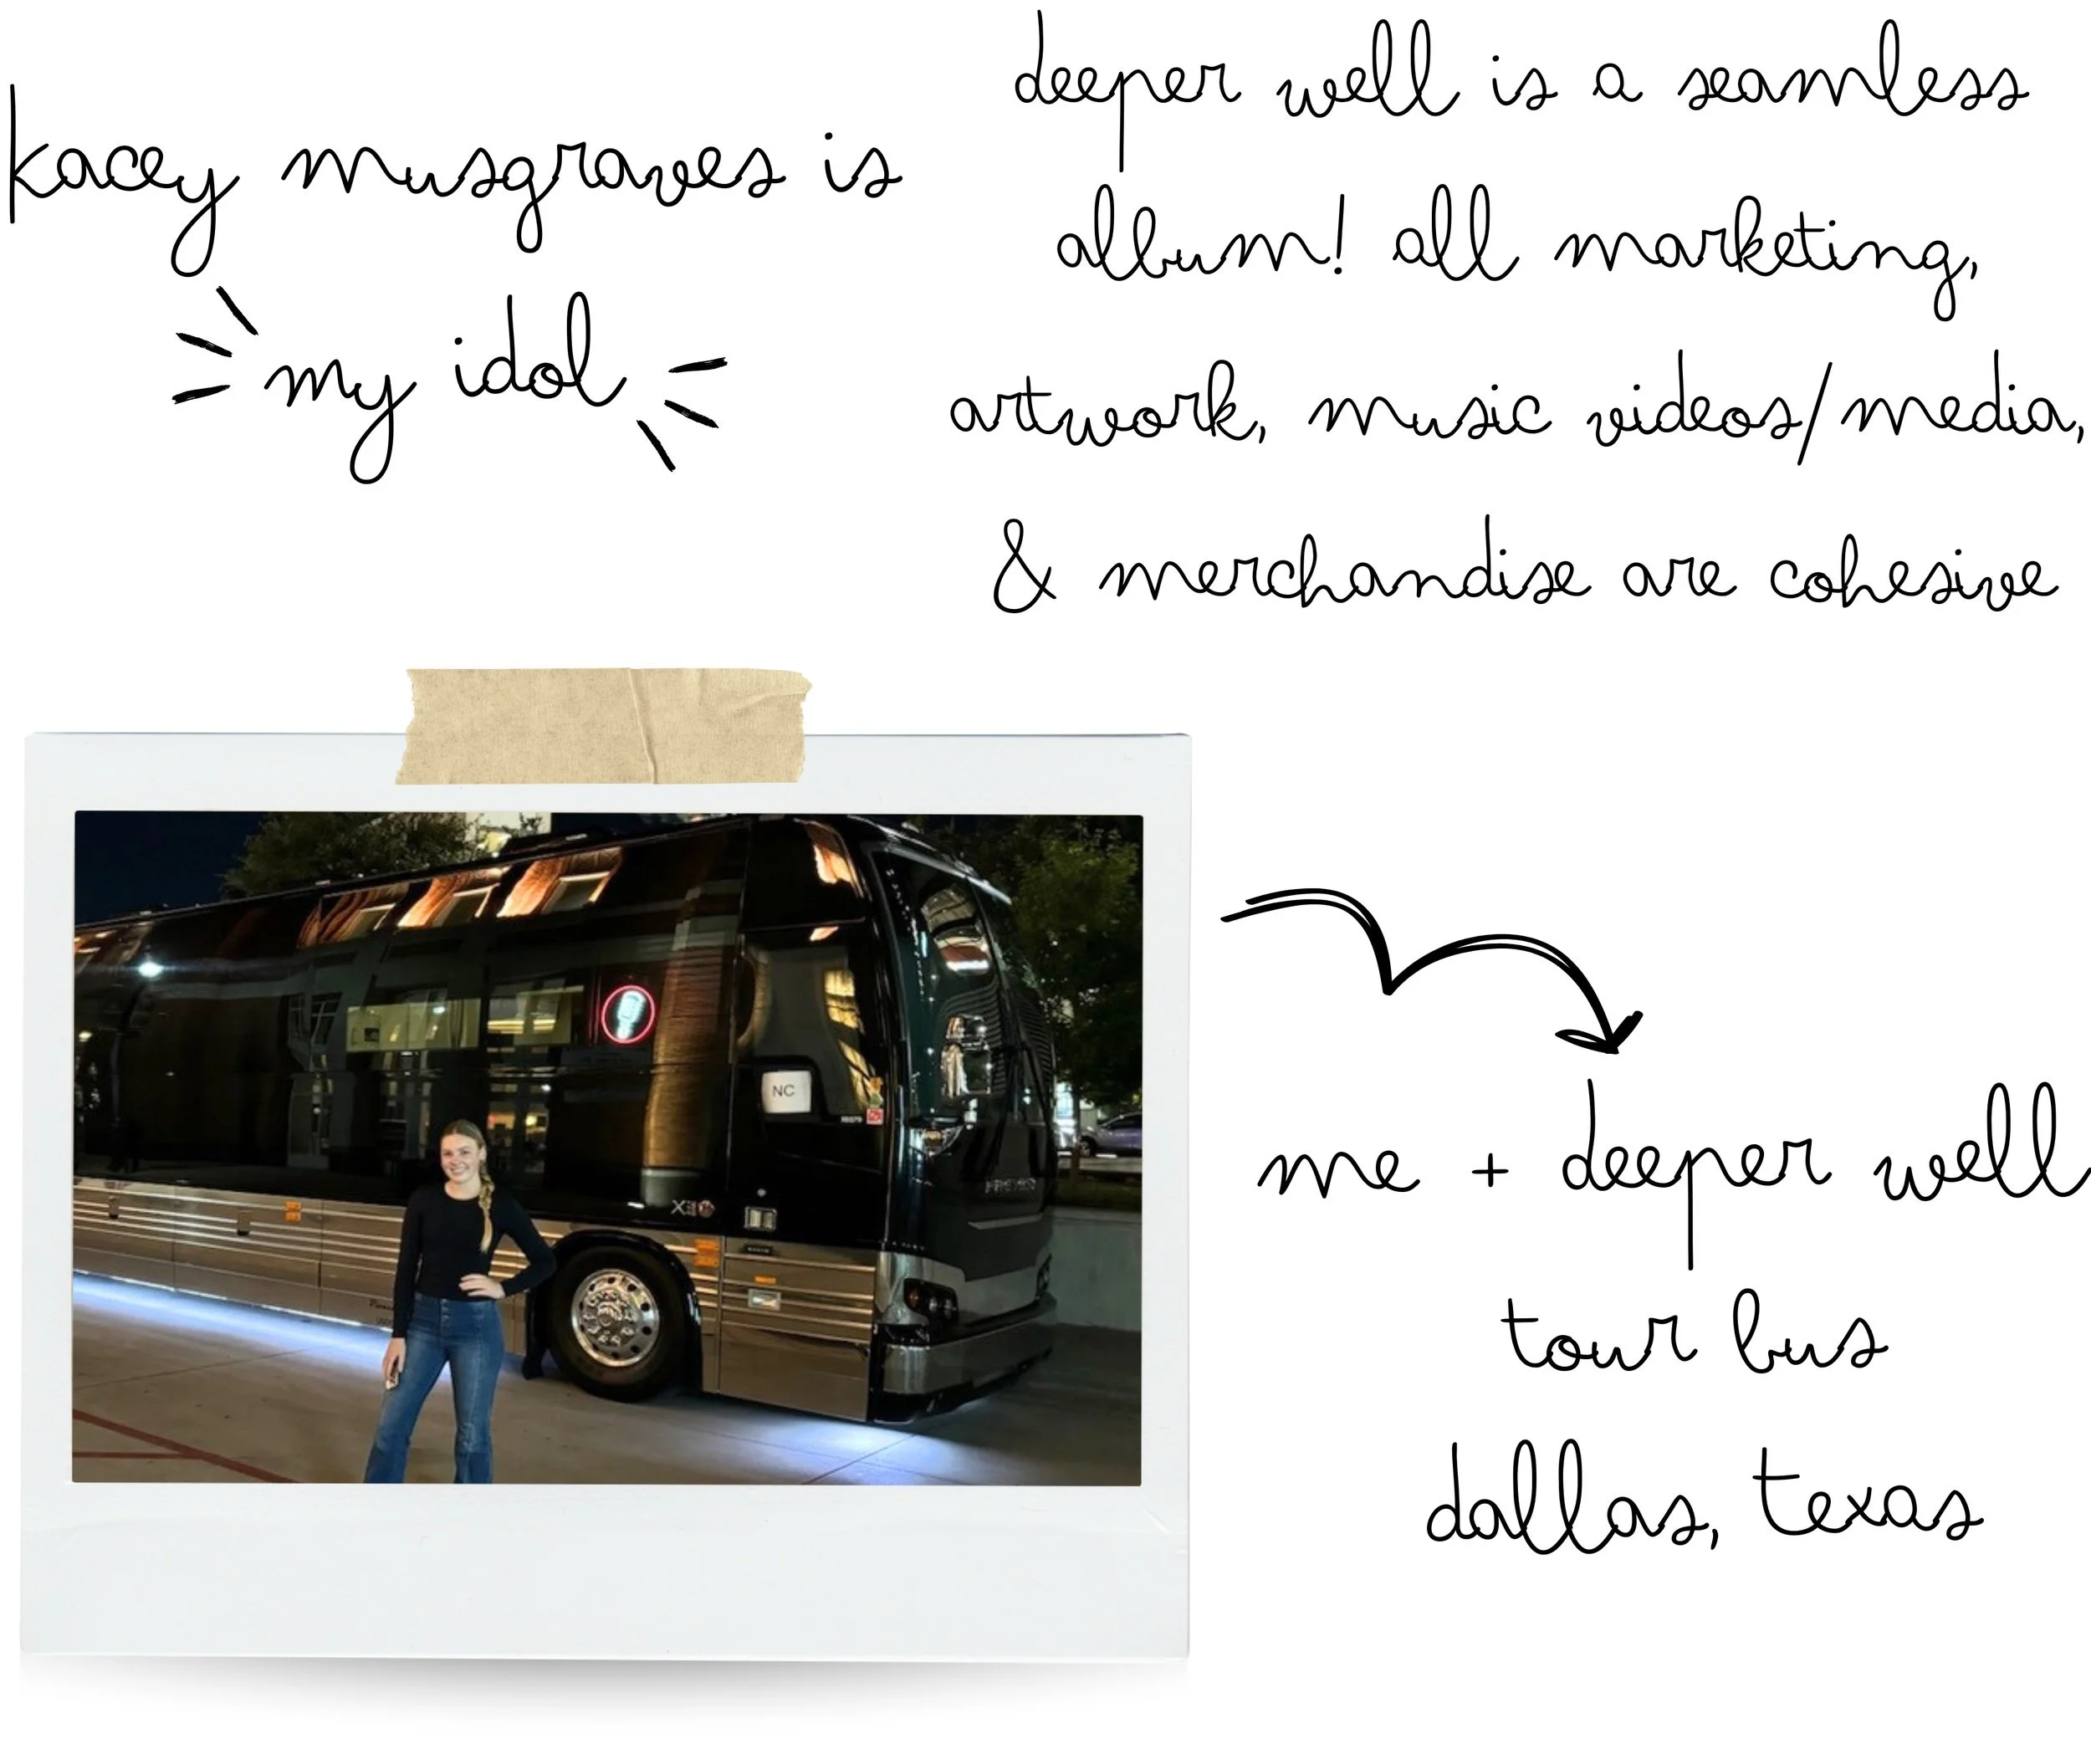 kacey musgraves is
my idol
deeper well is a seamless
album! all marketing,
artwork, music videos/media,
& merchandise are cohesive
NC
me + deeper well
tour bus
dallas, texas